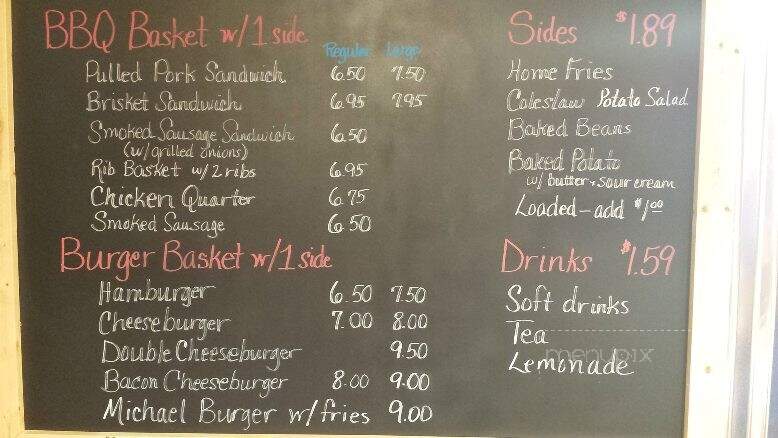 BBQ Basket w/1 side
Regular Large
Pulled Pork Sandwich 6.50 7.50
Brisket Sandwich 6.95 7.95
Smoked Sausage Sandwich 6.50
(w/grilled onions)
Rib Basket w/2 ribs 6.95
Chicken Quarter 6.75
Smoked Sausage 6.50
Burger Basket w/1 side
Hamburger 6.50 7.50
Cheeseburger 7.00 8.00
Double Cheeseburger 9.50
Bacon Cheeseburger 8.00 9.00
Michael Burger w/fries 9.00
Sides $1.89
Home Fries
Coleslaw Potato Salad
Baked Beans
Baked Potato
w/ butter + sour cream
Loaded - add $1.00
Drinks $1.59
Soft drinks
Tea
menupix
Lemonade